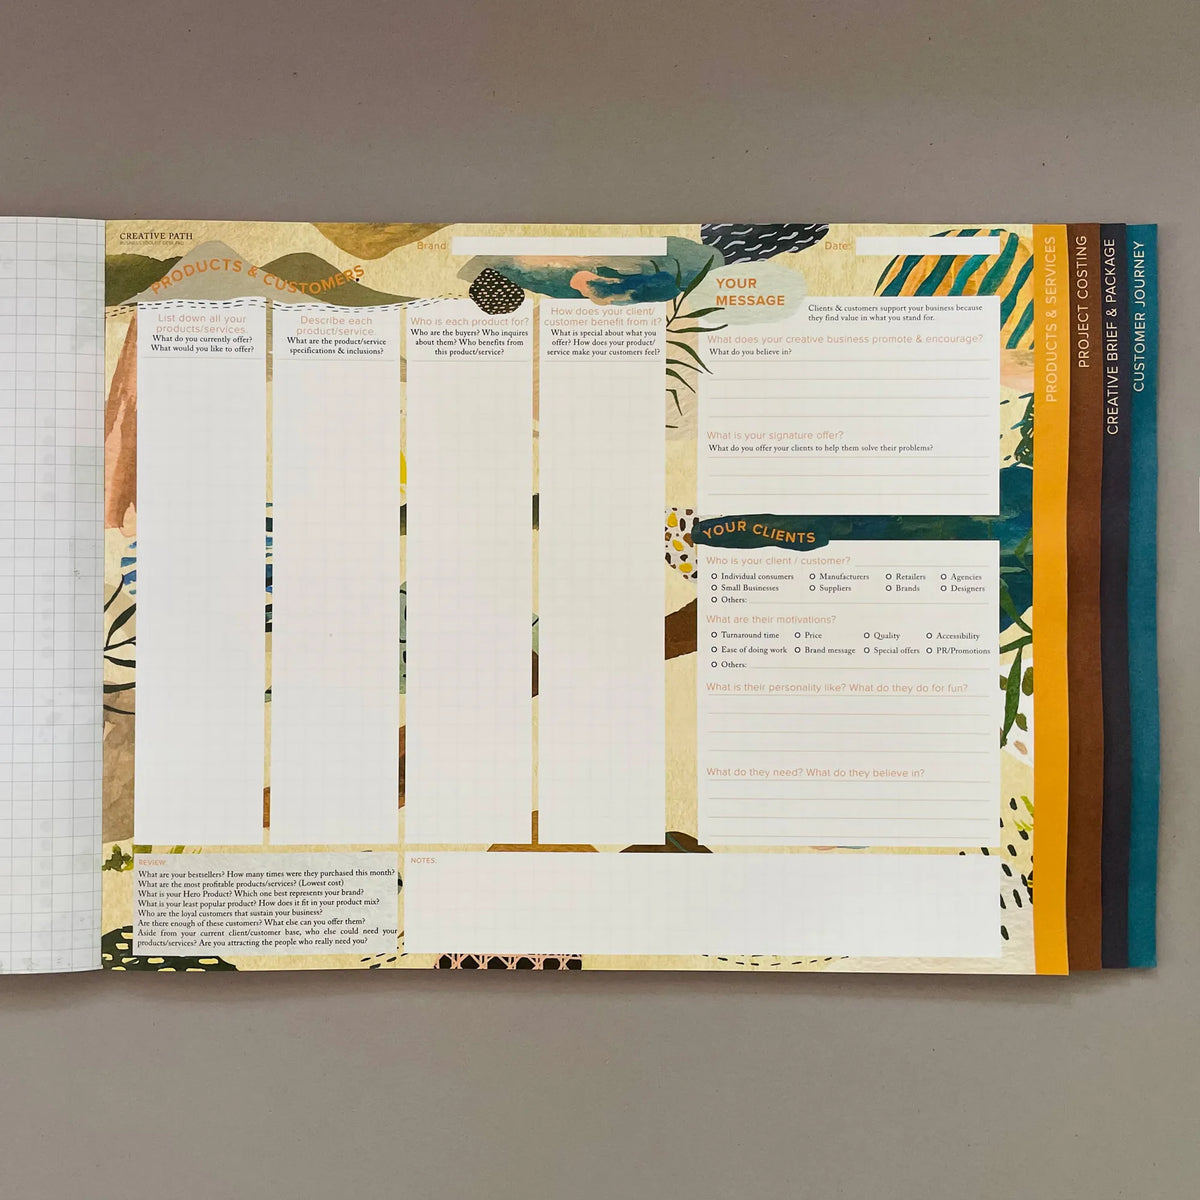 CREATIVE PATH
BUSINESS TOOLKIT DESK PAD
Brand:
Date:
PRODUCTS & CUSTOMERS
List down all your
products/services.
What do you currently offer?
What would you like to offer?
Describe each
product/service.
What are the product/service
specifications & inclusions?
Who is each product for?
Who are the buyers? Who inquires
about them? Who benefits from
this product/service?
How does your client/
customer benefit from it?
What is special about what you
offer? How does your product/
service make your customers feel?
YOUR
MESSAGE
Clients & customers support your business because
they find value in what you stand for.
What does your creative business promote & encourage?
What do you believe in?
What is your signature offer?
What do you offer your clients to help them solve their problems?
YOUR CLIENTS
Who is your client / customer?
Individual consumers Manufacturers Retailers Agencies
Small Businesses Suppliers Brands Designers
Others:
What are their motivations?
Turnaround time Price Quality Accessibility
Ease of doing work Brand message Special offers PR/Promotions
Others:
What is their personality like? What do they do for fun?
What do they need? What do they believe in?
REVIEW:
What are your bestsellers? How many times were they purchased this month?
What are the most profitable products/services? (Lowest cost)
What is your Hero Product? Which one best represents your brand?
What is your least popular product? How does it fit in your product mix?
Who are the loyal customers that sustain your business?
Are there enough of these customers? What else can you offer them?
Aside from your current client/customer base, who else could need your
products/services? Are you attracting the people who really need you?
NOTES:
PRODUCTS & SERVICES
PROJECT COSTING
CREATIVE BRIEF & PACKAGE
CUSTOMER JOURNEY